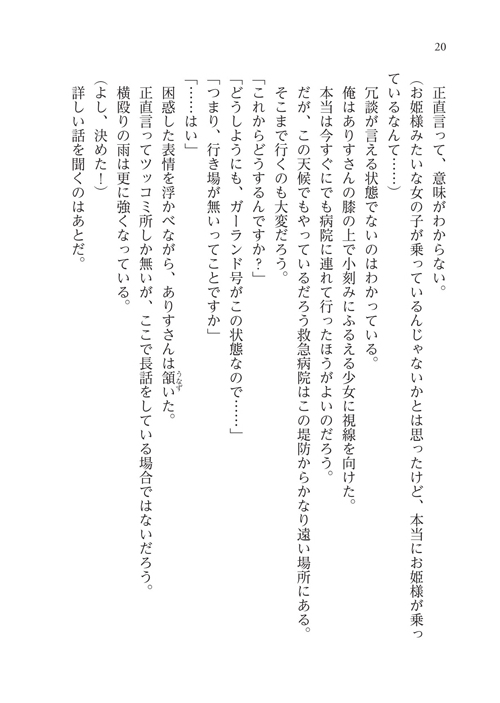 20
正直言って、意味がわからない。
(お姫様みたいな女の子が乗っているんじゃないかとは思ったけど、本当にお姫様が乗っ
ているなんて……)
冗談が言える状態でないのはわかっている。
俺はありすさんの膝の上で小刻みにふるえる少女に視線を向けた。
本当は今すぐにでも病院に連れて行ったほうがよいのだろう。
だが、この天候でもやっているだろう救急病院はこの堤防からかなり遠い場所にある。
そこまで行くのも大変だろう。
「これからどうするんですか?」
「どうしようにも、ガーランド号がこの状態なので……」
「つまり、行き場が無いってことですか」
「……はい」
困惑した表情を浮かべながら、ありすさんは頷うなずいた。
正直言ってツッコミ所しか無いが、ここで長話をしている場合ではないだろう。
横殴りの雨は更に強くなっている。
(よし、決めた!)
詳しい話を聞くのはあとだ。